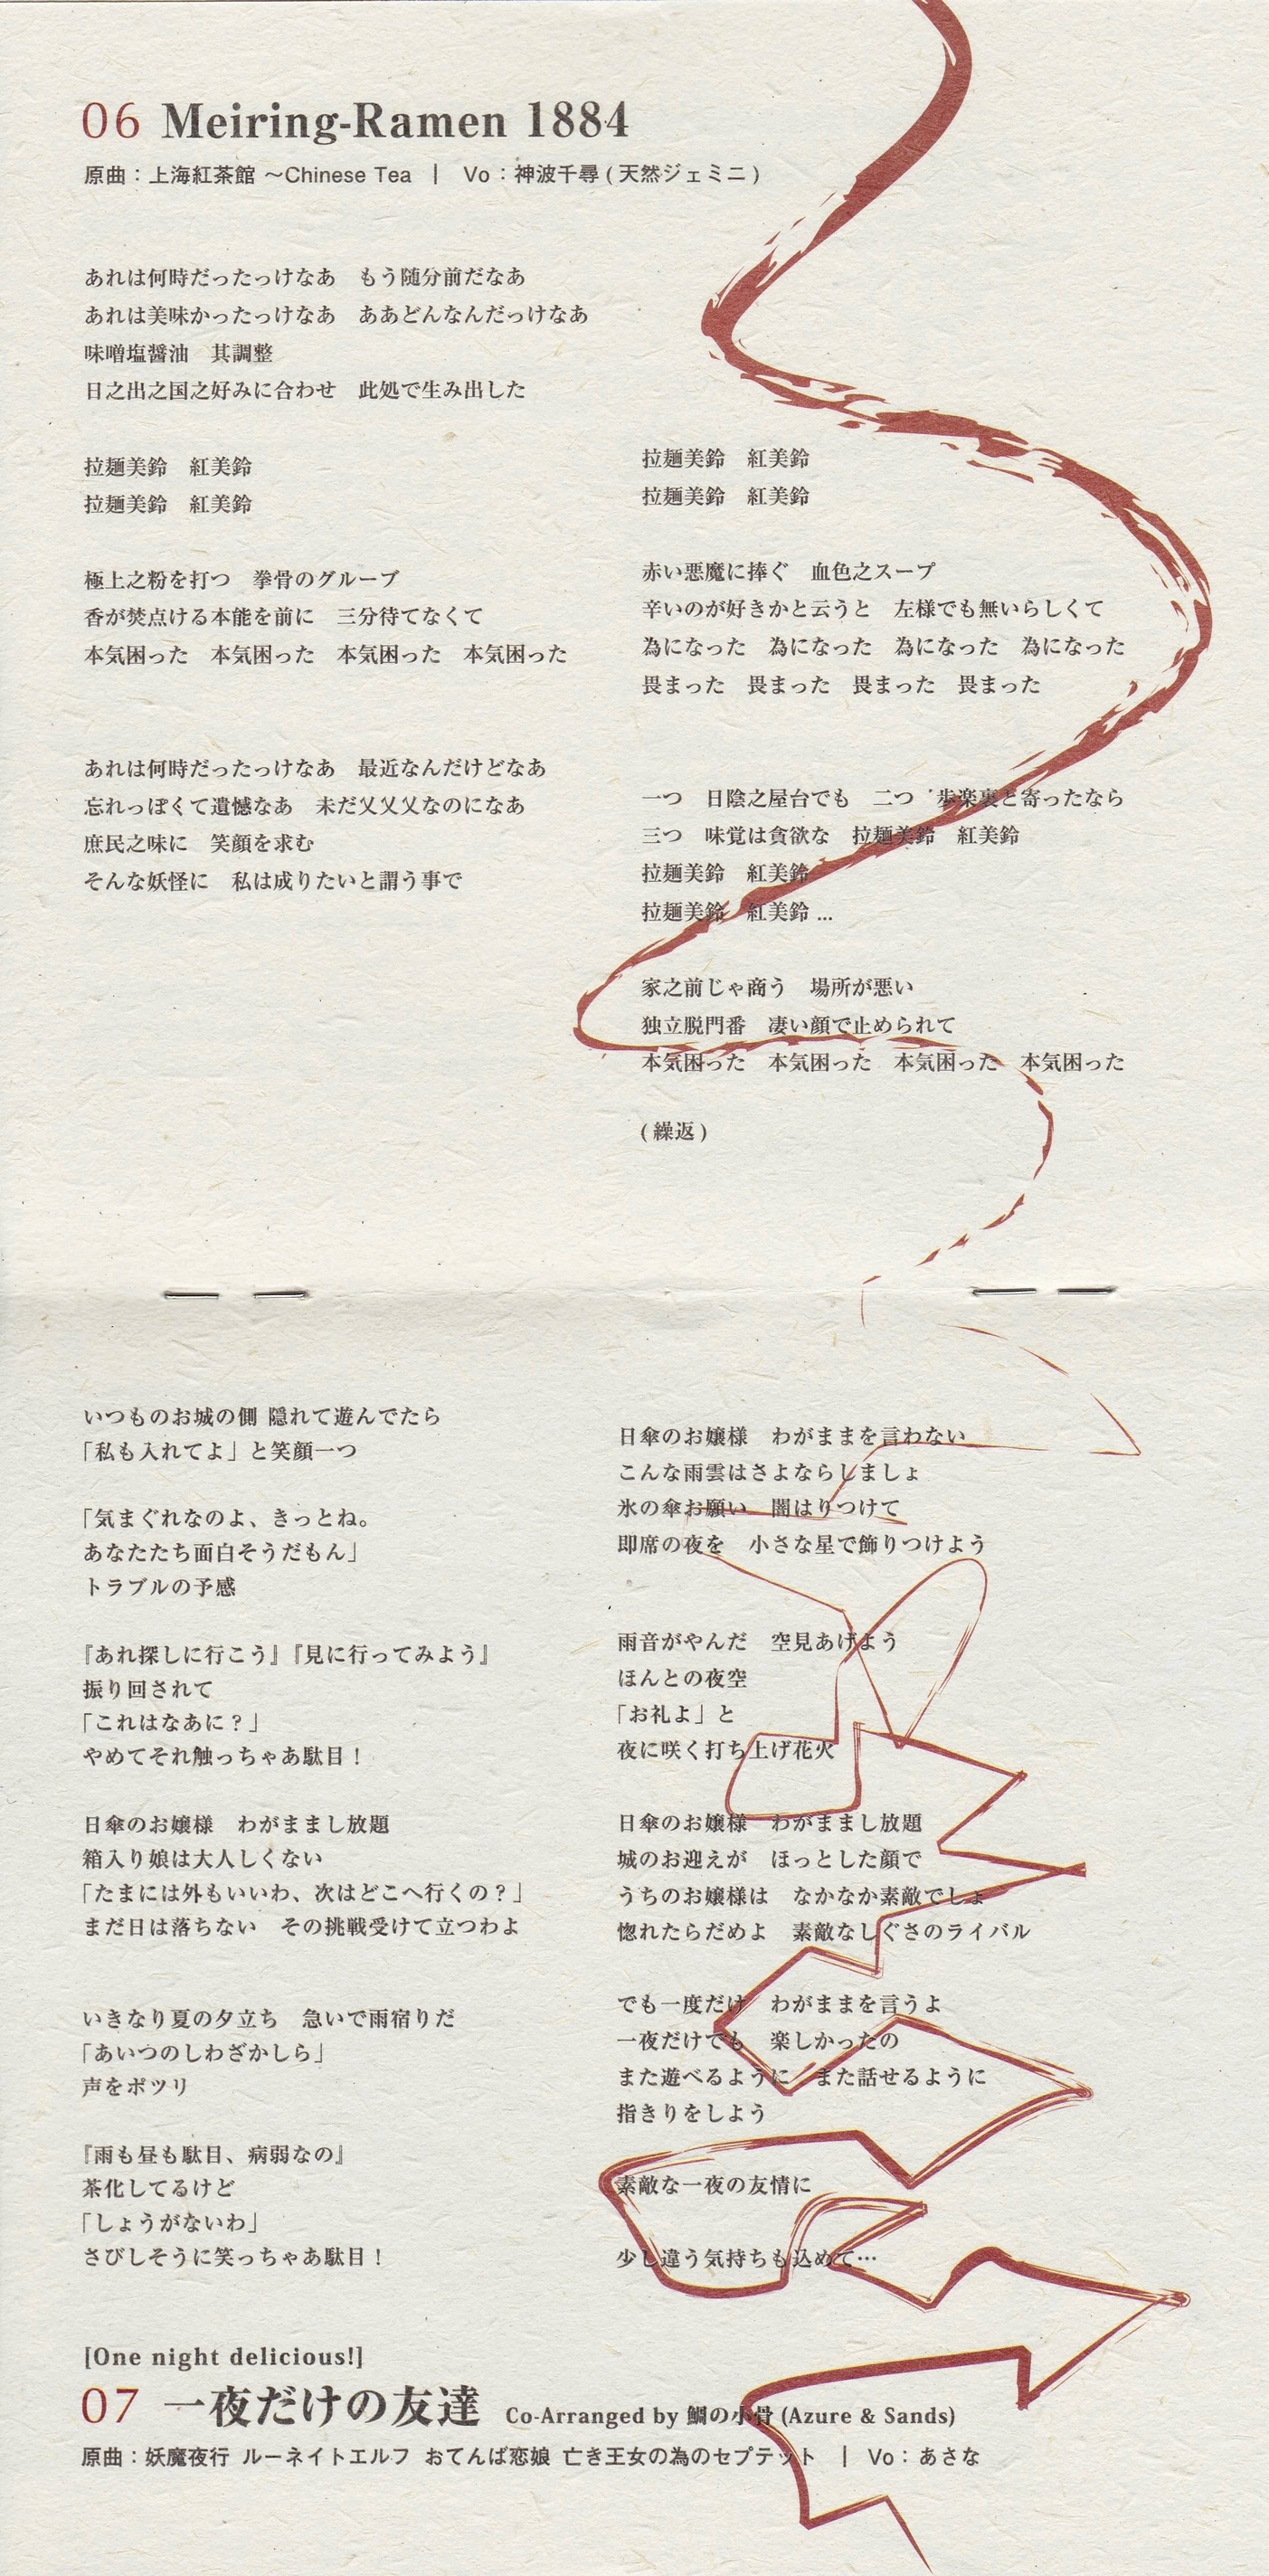 06 Meiring-Ramen 1884
原曲：上海紅茶館 ～Chinese Tea ｜ Vo：神波千尋 ( 天然ジェミニ )
あれは何時だったっけなあ　もう随分前だなあ
あれは美味かったっけなあ　ああどんなんだっけなあ
味噌塩醤油　其調整
日之出之国之好みに合わせ　此処で生み出した
拉麺美鈴　紅美鈴
拉麺美鈴　紅美鈴
極上之粉を打つ　拳骨のグルーブ
香が焚点ける本能を前に　三分待てなくて
本気困った　本気困った　本気困った　本気困った
あれは何時だったっけなあ　最近なんだけどなあ
忘れっぽくて遺憾なあ　未だ乂乂乂なのになあ
庶民之味に　笑顔を求む
そんな妖怪に　私は成りたいと謂う事で
拉麺美鈴　紅美鈴
拉麺美鈴　紅美鈴
赤い悪魔に捧ぐ　血色之スープ
辛いのが好きかと云うと　左様でも無いらしくて
為になった　為になった　為になった　為になった
畏まった　畏まった　畏まった　畏まった
一つ　日陰之屋台でも　二つ　歩楽裏と寄ったなら
三つ　味覚は貪欲な　拉麺美鈴　紅美鈴
拉麺美鈴　紅美鈴
拉麺美鈴　紅美鈴 ...
家之前じゃ商う　場所が悪い
独立脱門番　凄い顔で止められて
本気困った　本気困った　本気困った　本気困った
( 繰返 )
いつものお城の側 隠れて遊んでたら
「私も入れてよ」と笑顔一つ
「気まぐれなのよ、きっとね。
あなたたち面白そうだもん」
トラブルの予感
『あれ探しに行こう』『見に行ってみよう』
振り回されて
「これはなあに？」
やめてそれ触っちゃあ駄目！
日傘のお嬢様　わがままし放題
箱入り娘は大人しくない
「たまには外もいいわ、次はどこへ行くの？」
まだ日は落ちない　その挑戦受けて立つわよ
いきなり夏の夕立ち　急いで雨宿りだ
「あいつのしわざかしら」
声をポツリ
『雨も昼も駄目、病弱なの』
茶化してるけど
「しょうがないわ」
さびしそうに笑っちゃあ駄目！
日傘のお嬢様　わがままを言わない
こんな雨雲はさよならしましょ
氷の傘お願い　闇はりつけて
即席の夜を　小さな星で飾りつけよう
雨音がやんだ　空見あげよう
ほんとの夜空
「お礼よ」と
夜に咲く打ち上げ花火
日傘のお嬢様　わがままし放題
城のお迎えが　ほっとした顔で
うちのお嬢様は　なかなか素敵でしょ
惚れたらだめよ　素敵なしぐさのライバル
でも一度だけ　わがままを言うよ
一夜だけでも　楽しかったの
また遊べるように　また話せるように
指きりをしよう
素敵な一夜の友情に
少し違う気持ちも込めて…
[One night delicious!]
07 一夜だけの友達 Co-Arranged by 鯛の小骨 (Azure & Sands)
原曲：妖魔夜行 ルーネイトエルフ おてんば恋娘 亡き王女の為のセプテット ｜ Vo：あさな